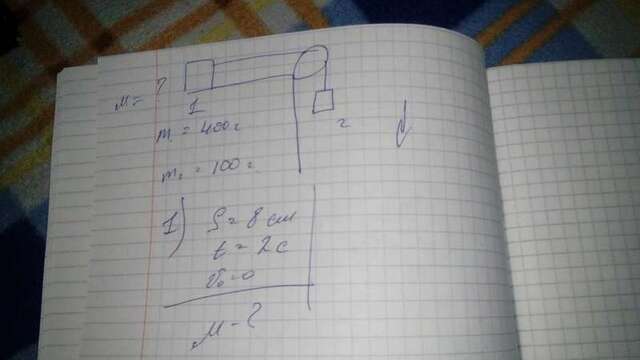 μ = ?
1
m₁ = 400 г
2
m₂ = 100 г
1)
S = 8 см
t = 2 с
v₀ = 0
μ - ?